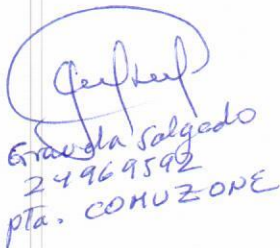 Granda Salgado
24969592
pta. COMUZONE